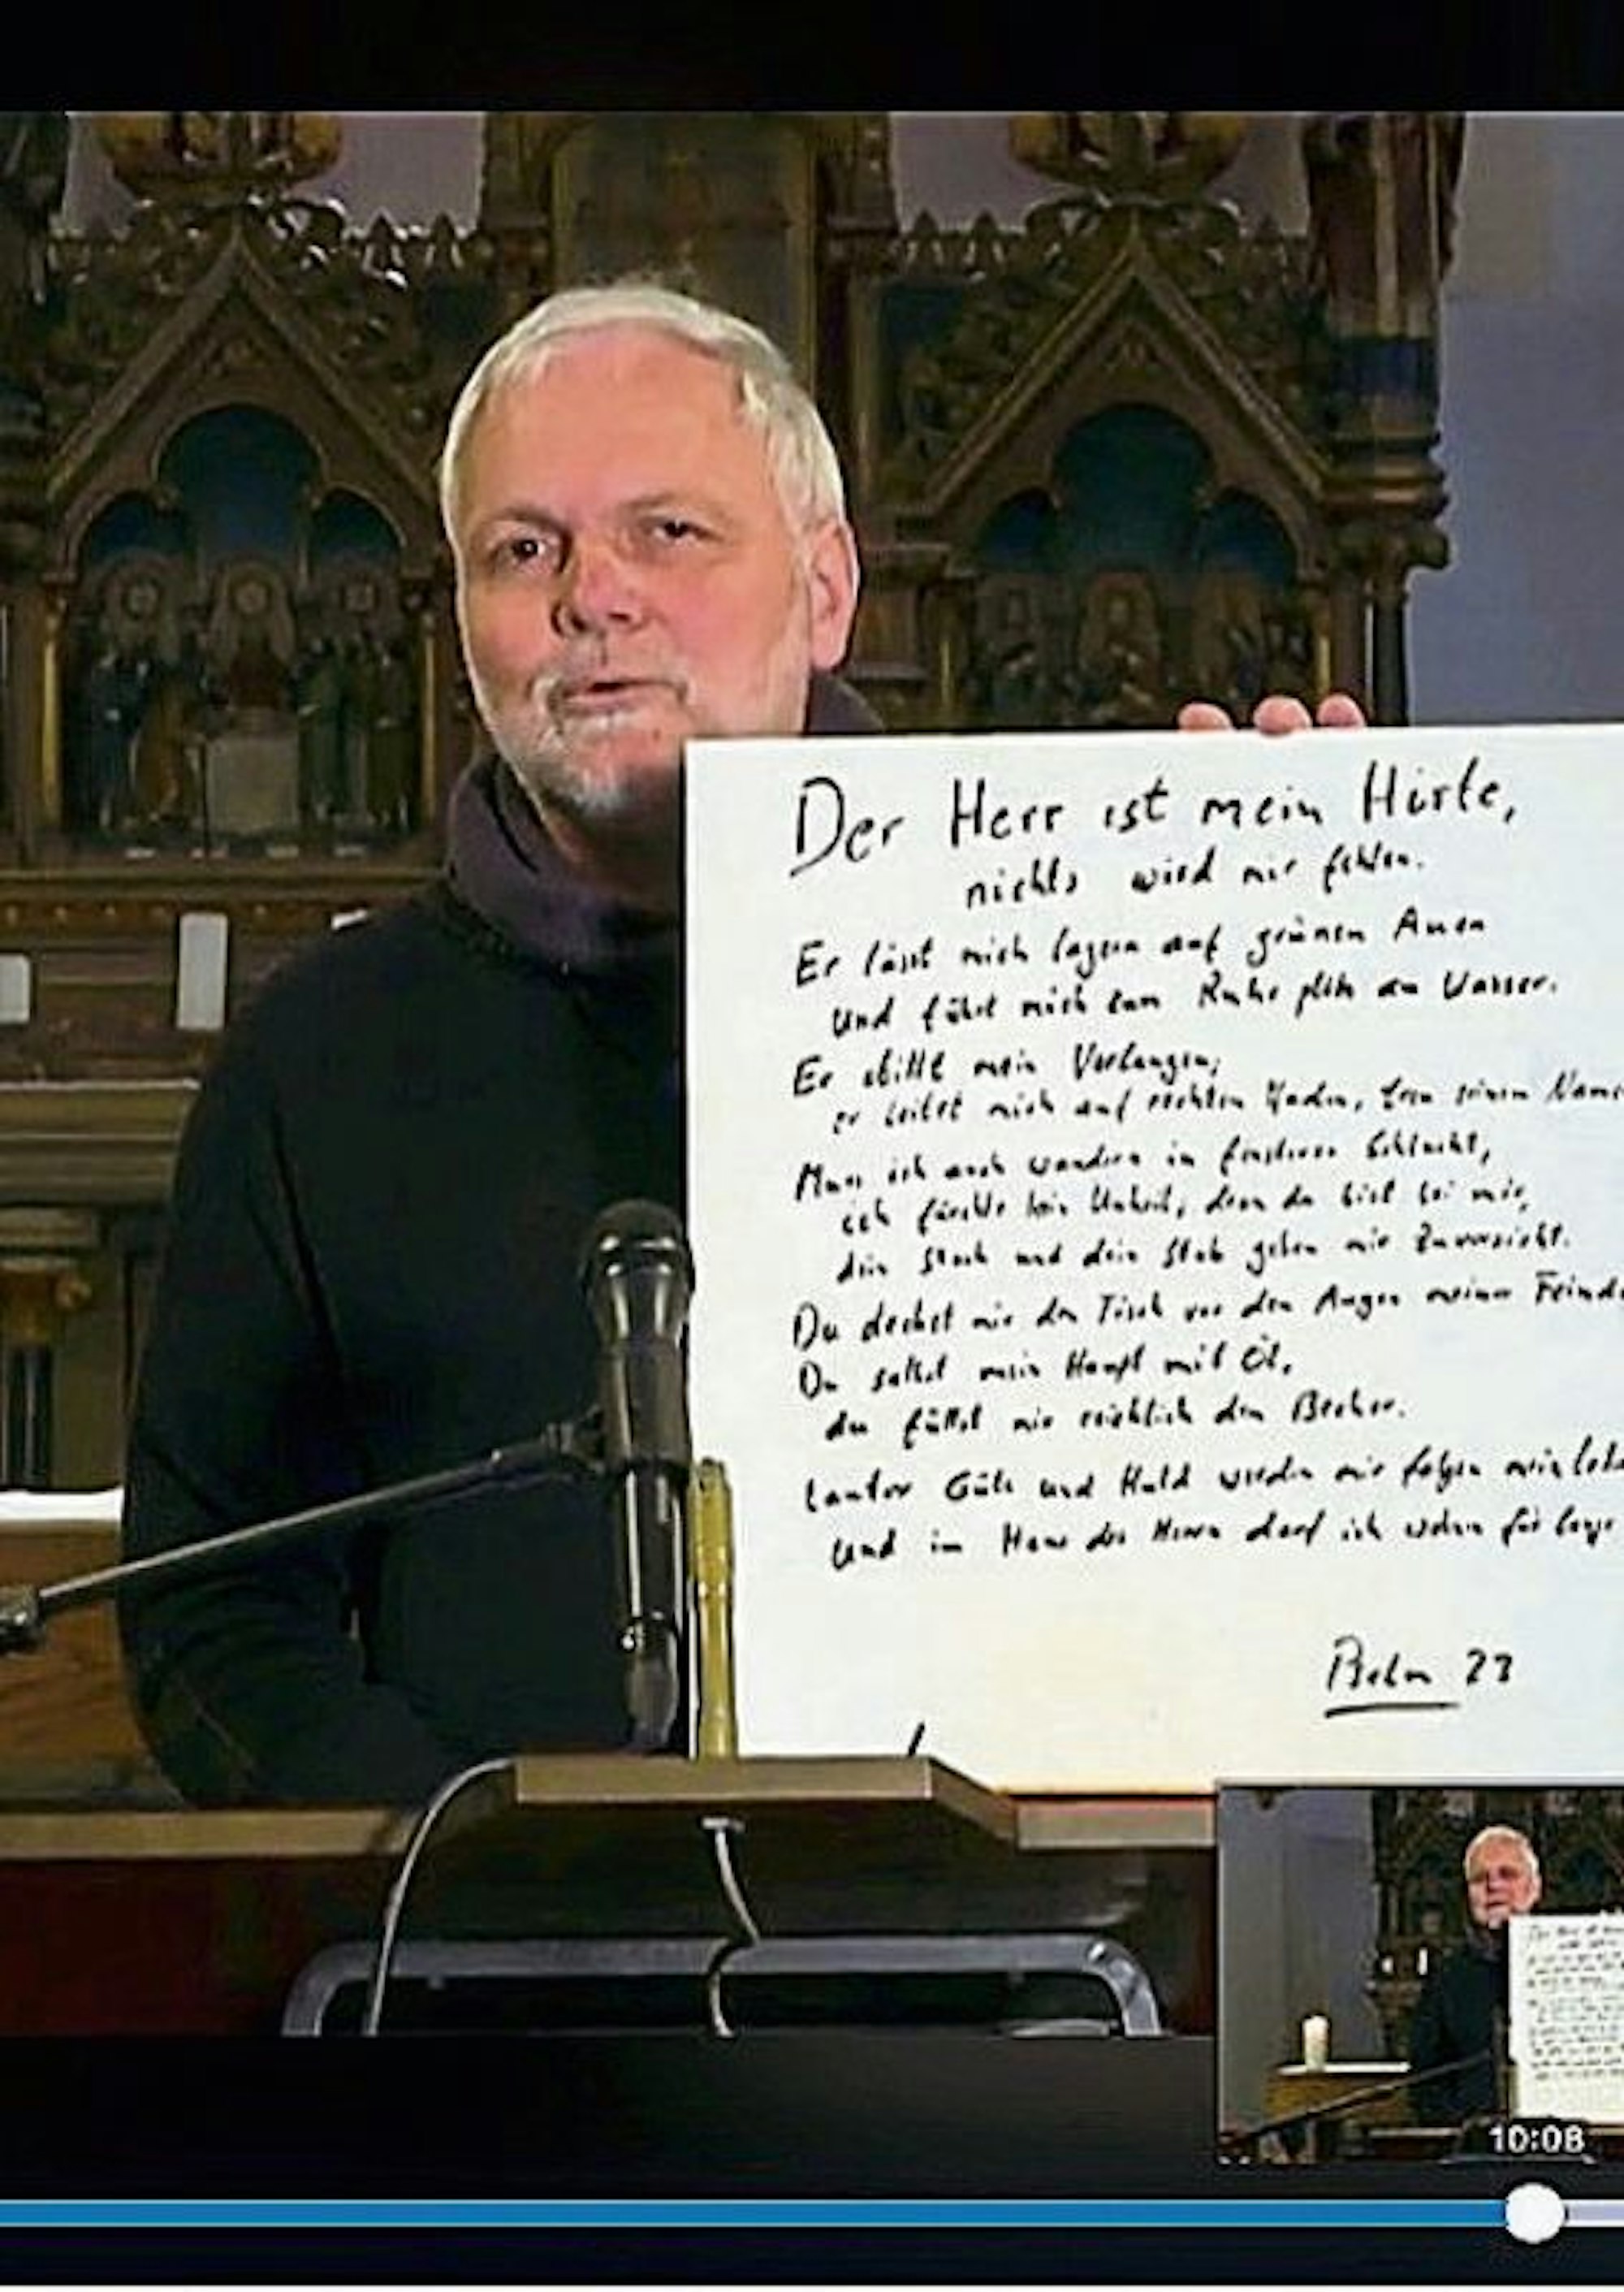 Der Herr ist mein Hirte,
nichts wird mir fehlen.
Er lässt mich lagern auf grünen Auen
und führt mich zum Ruheplatz am Wasser.
Er stillt mein Verlangen;
er leitet mich auf rechten Pfaden, treu seinem Name
Muss ich auch wandern in finsterer Schlucht,
ich fürchte kein Unheil, denn du bist bei mir,
dein Stock und dein Stab geben mir Zuversicht.
Du deckst mir den Tisch vor den Augen meiner Feinde
Du salbst mein Haupt mit Öl,
du füllst mir reichlich den Becher.
Lauter Güte und Huld werden mir folgen mein Lebe
und im Haus des Herrn darf ich wohnen für lange
Psalm 23
10:08